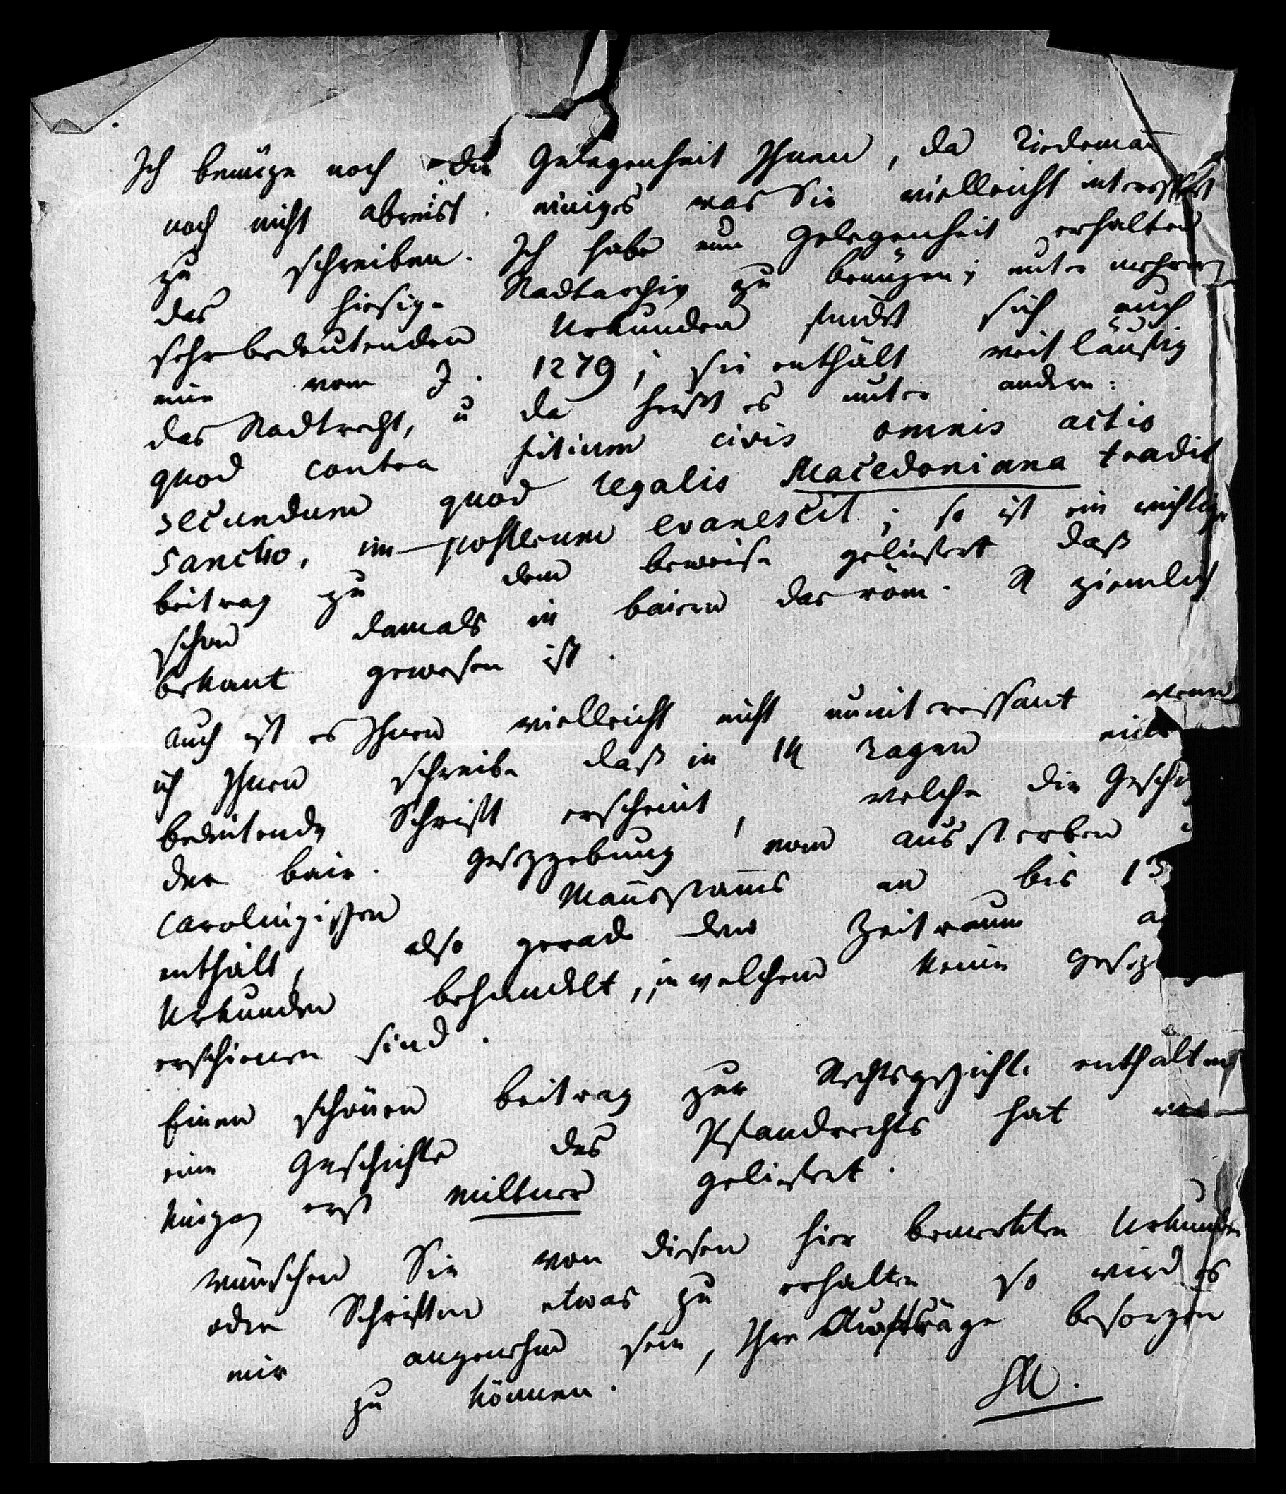 Ich benüze noch die Gelegenheit Ihnen, da Tiedeman̄
noch nicht abreist. einiges was Sie vielleicht interessirt
zu schreiben. Ich habe nun Gelegenheit erhalten
das hiesige Stadtarchiv zu benüzen; unter mehrern
sehr bedeutenden Urkunden findet sich auch
eine vom J. 1279; sie enthält weitläufig
das Stadtrecht, u da heißt es unter andern:
quod contra filium civis omnis actio
secundum quod legalis Macedoniana tradit
sanctio, im posterum evanescit; so ist ein wichtiger
beitrag zu dem beweise geliefert daß
schon damals in baiern das röm. R ziemlich
bekant gewesen ist.
Auch ist es Ihnen vielleicht nicht uninteressant wenn
ich Ihnen schreibe daß in 14 Tagen eine
bedeutende Schrift erscheint, welche die Gesch
der bair. Gesezgebung vom aussterben
carolingischen Man̄sstam̄s an bis 13
enthält, also gerade den Zeitraum a
Urkunden behandelt, in welchem keine Gesez
erschienen sind.
Einen schönen beitrag zur Rechtsgeschichte enthaltend
eine Geschichte des Pfandrechts hat vor
kurzen erst Miltner geliefert.
Wünschen Sie von diesen hier bemerkten Urkunden
oder Schriften etwas zu erhalten so wird es
mir angenehm sein, Ihre Aufträge besorgen
zu können.
M.